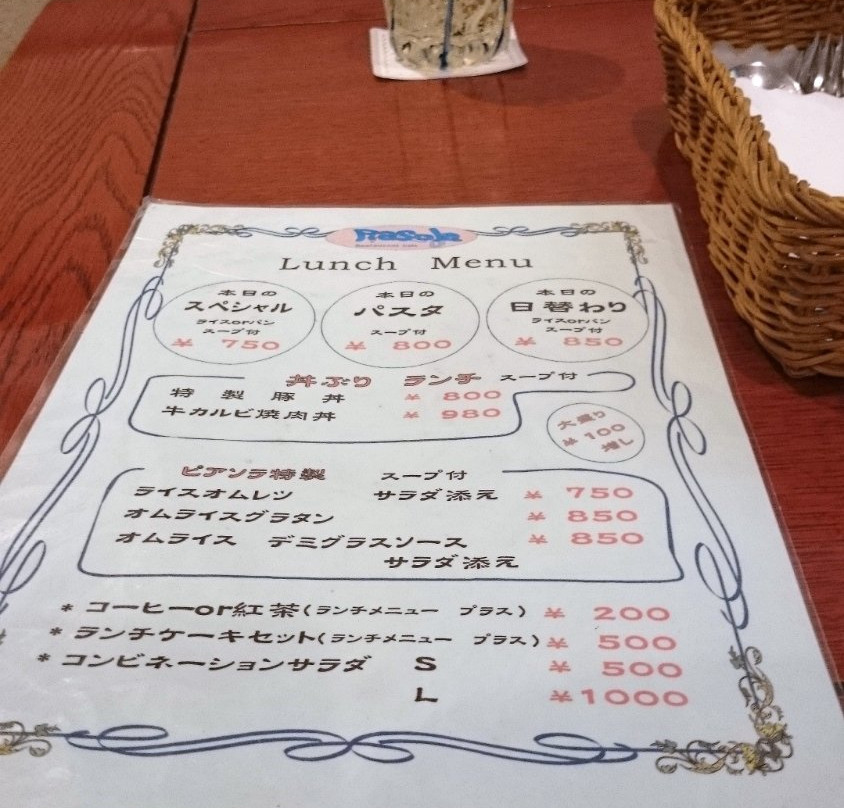 Lunch Menu
本日の
スペシャル
ライスorパン
スープ付
¥ 750
本日の
パスタ
スープ付
¥ 800
本日の
日替わり
ライスorパン
スープ付
¥ 850
丼ぶり ランチ スープ付
特製豚丼 ¥ 800
牛カルビ焼肉丼 ¥ 980
大盛り
¥100
増し
ピアソラ特製 スープ付
ライスオムレツ サラダ添え ¥ 750
オムライスグラタン ¥ 850
オムライス デミグラスソース ¥ 850
サラダ添え
* コーヒーor紅茶(ランチメニュー プラス) ¥ 200
* ランチケーキセット(ランチメニュー プラス) ¥ 500
* コンビネーションサラダ S ¥ 500
L ¥1000